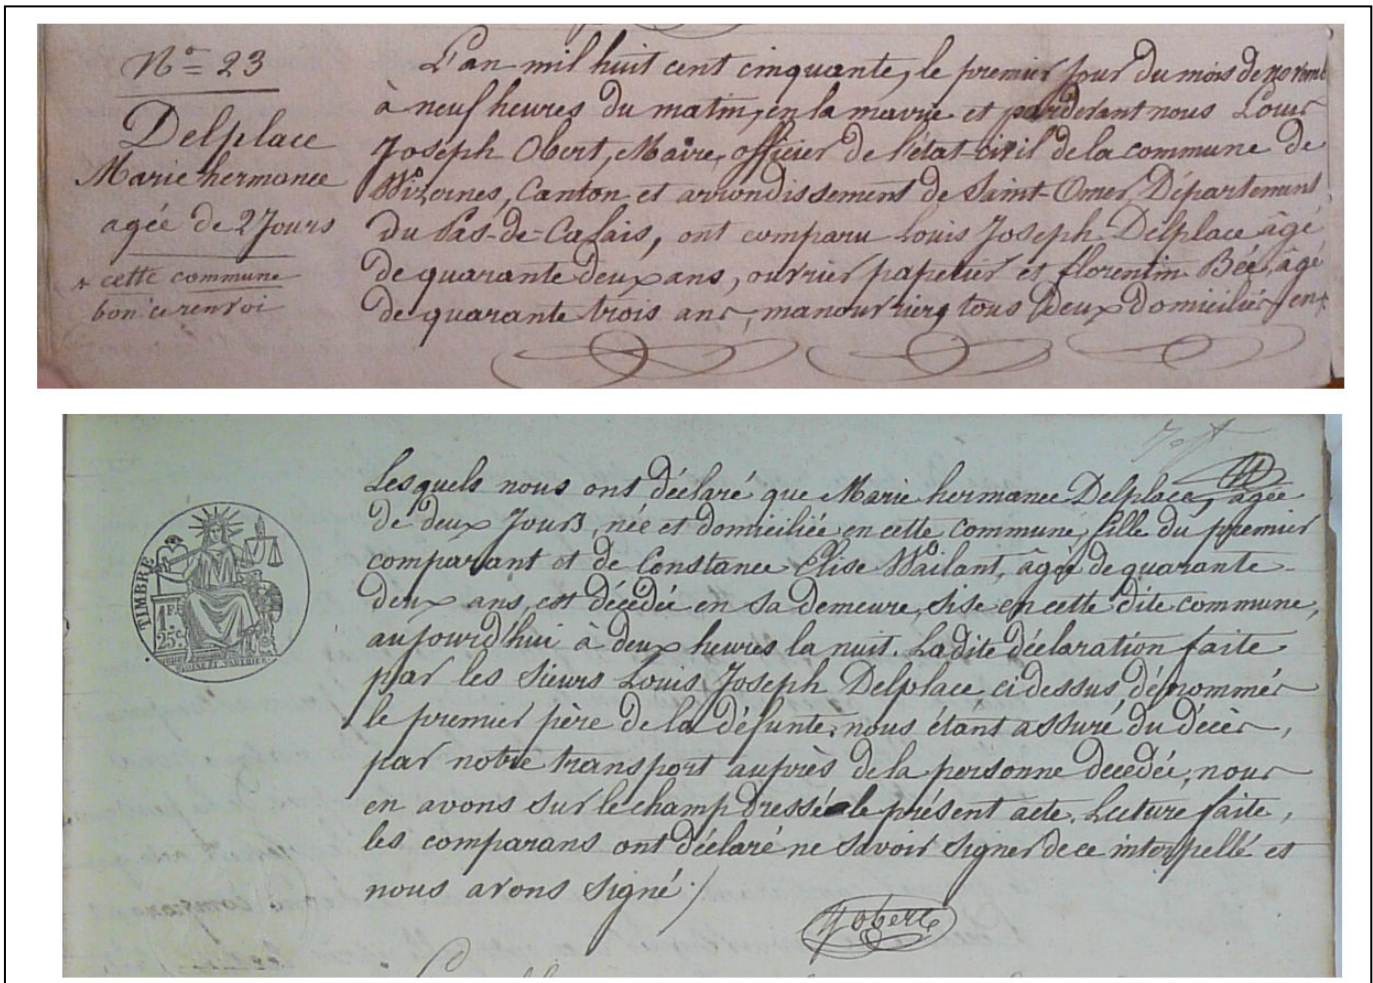 N° = 23
Delplace
Marie hermance
agée de 2 Jours
+ cette commune
bon ce renvoi
L'an mil huit cent cinquante, le premier jour du mois de novemb
à neuf heures du matin, en la mairie et pardevant nous Louis
Joseph Obert, Maire, officier de l'état-civil de la commune de
Wizernes, Canton et arrondissement de Saint-Omer, Département
du Pas-de-Calais, ont comparu Louis Joseph Delplace âgé
de quarante deux ans, ouvrier papetier et florentin Bée, âgé
de quarante trois ans, manouvrier, tous deux domiciliés en +
Lesquels nous ont déclaré que Marie hermance Delplace, agée
de deux Jours, née et domiciliée en cette commune, fille du premier
comparant et de Constance Elise Wailant, âgée de quarante-
deux ans, est décédée en sa demeure, sise en cette dite commune,
aujourd'hui à deux heures la nuit. La dite déclaration faite
par les sieurs Louis Joseph Delplace ci dessus dénommés
le premier père de la défunte, nous étant assuré du décès,
par notre transport auprès de la personne décédée, nous
en avons sur le champ dressé le présent acte. Lecture faite,
les comparans ont déclaré ne savoir signer de ce interpellé et
nous avons signé ./
TIMBRE
1 F.
25 c.
Obert